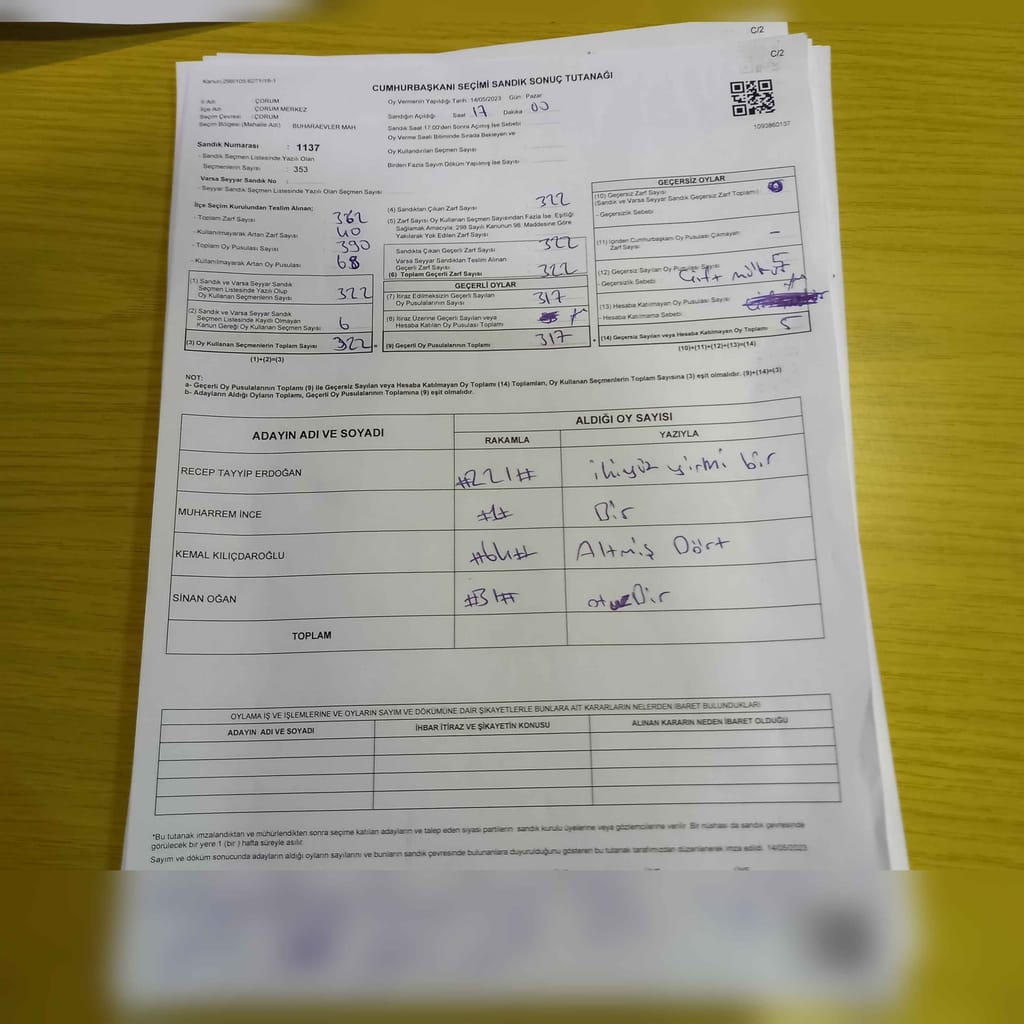 C/2
C/2
Kanun:298/105.6271/18-1
CUMHURBAŞKANI SEÇİMİ SANDIK SONUÇ TUTANAĞI
İl Adı : ÇORUM
İlçe Adı : ÇORUM MERKEZ
Seçim Çevresi : ÇORUM
Seçim Bölgesi (Mahalle Adı) : BUHARAEVLER MAH
Oy Vermenin Yapıldığı Tarih :14/05/2023 Gün : Pazar
Sandığın Açıldığı Saat 17 Dakika 00
Sandık Saat 17:00'den Sonra Açılmış İse Sebebi
Oy Verme Saati Bitiminde Sırada Bekleyen ve
Oy Kullandırılan Seçmen Sayısı
Birden Fazla Sayım Döküm Yapılmış İse Sayısı
1093860137
Sandık Numarası : 1137
- Sandık Seçmen Listesinde Yazılı Olan
Seçmenlerin Sayısı : 353
Varsa Seyyar Sandık No :
- Seyyar Sandık Seçmen Listesinde Yazılı Olan Seçmen Sayısı
İlçe Seçim Kurulundan Teslim Alınan;
- Toplam Zarf Sayısı 362
- Kullanılmayarak Artan Zarf Sayısı 40
- Toplam Oy Pusulası Sayısı 390
- Kullanılmayarak Artan Oy Pusulası 68
(1) Sandık ve Varsa Seyyar Sandık
Seçmen Listesinde Yazılı Olup
Oy Kullanan Seçmenlerin Sayısı 322
(2) Sandık ve Varsa Seyyar Sandık
Seçmen Listesinde Kayıtlı Olmayan
Kanun Gereği Oy Kullanan Seçmen Sayısı 6
(3) Oy Kullanan Seçmenlerin Toplam Sayısı 322
(1)+(2)=(3)
(4) Sandıktan Çıkan Zarf Sayısı 322
(5) Zarf Sayısı Oy Kullanan Seçmen Sayısından Fazla İse, Eşitliği
Sağlamak Amacıyla; 298 Sayılı Kanunun 98. Maddesine Göre
Yakılarak Yok Edilen Zarf Sayısı
Sandıkta Çıkan Geçerli Zarf Sayısı 322
Varsa Seyyar Sandıktan Teslim Alınan
Geçerli Zarf Sayısı
(6) Toplam Geçerli Zarf Sayısı 322
GEÇERLİ OYLAR
(7) İtiraz Edilmeksizin Geçerli Sayılan
Oy Pusulalarının Sayısı 317
(8) İtiraz Üzerine Geçerli Sayılan veya
Hesaba Katılan Oy Pusulası Toplamı
(9) Geçerli Oy Pusulalarının Toplamı 317
GEÇERSİZ OYLAR
(10) Geçersiz Zarf Sayısı
(Sandık ve Varsa Seyyar Sandık Geçersiz Zarf Toplamı)
- Geçersizlik Sebebi
(11) İçinden Cumhurbaşkanı Oy Pusulası Çıkmayan
Zarf Sayısı -
(12) Geçersiz Sayılan Oy Pusulası Sayısı 5
- Geçersizlik Sebebi Çift
(13) Hesaba Katılmayan Oy Pusulası Sayısı
- Hesaba Katılmama Sebebi
(14) Geçersiz Sayılan veya Hesaba Katılmayan Oy Toplamı 5
(10)+(11)+(12)+(13)=(14)
NOT:
a- Geçerli Oy Pusulalarının Toplamı (9) ile Geçersiz Sayılan veya Hesaba Katılmayan Oy Toplamı (14) Toplamları, Oy Kullanan Seçmenlerin Toplam Sayısına (3) eşit olmalıdır. (9)+(14)=(3)
b- Adayların Aldığı Oyların Toplamı, Geçerli Oy Pusulalarının Toplamına (9) eşit olmalıdır.
ADAYIN ADI VE SOYADI ALDIĞI OY SAYISI
RAKAMLA YAZIYLA
RECEP TAYYİP ERDOĞAN #221# ikiyüz yirmi bir
MUHARREM İNCE #1# Bir
KEMAL KILIÇDAROĞLU #64# Altmış Dört
SİNAN OĞAN #31# otuzBir
TOPLAM
OYLAMA İŞ VE İŞLEMLERİNE VE OYLARIN SAYIM VE DÖKÜMÜNE DAİR ŞİKAYETLERLE BUNLARA AİT KARARLARIN NELERDEN İBARET BULUNDUKLARI
ADAYIN ADI VE SOYADI İHBAR İTİRAZ VE ŞİKAYETİN KONUSU ALINAN KARARIN NEDEN İBARET OLDUĞU
*Bu tutanak imzalandıktan ve mühürlendikten sonra seçime katılan adayların ve talep eden siyasi partilerin sandık kurulu üyelerine veya gözlemcilerine verilir. Bir nüshası da sandık çevresinde
görülecek bir yere 1 (bir ) hafta süreyle asılır.
Sayım ve döküm sonucunda adayların aldığı oyların sayılarını ve bunların sandık çevresinde bulunanlara duyurulduğunu gösteren bu tutanak tarafımızdan düzenlenerek imza edildi. 14/05/2023